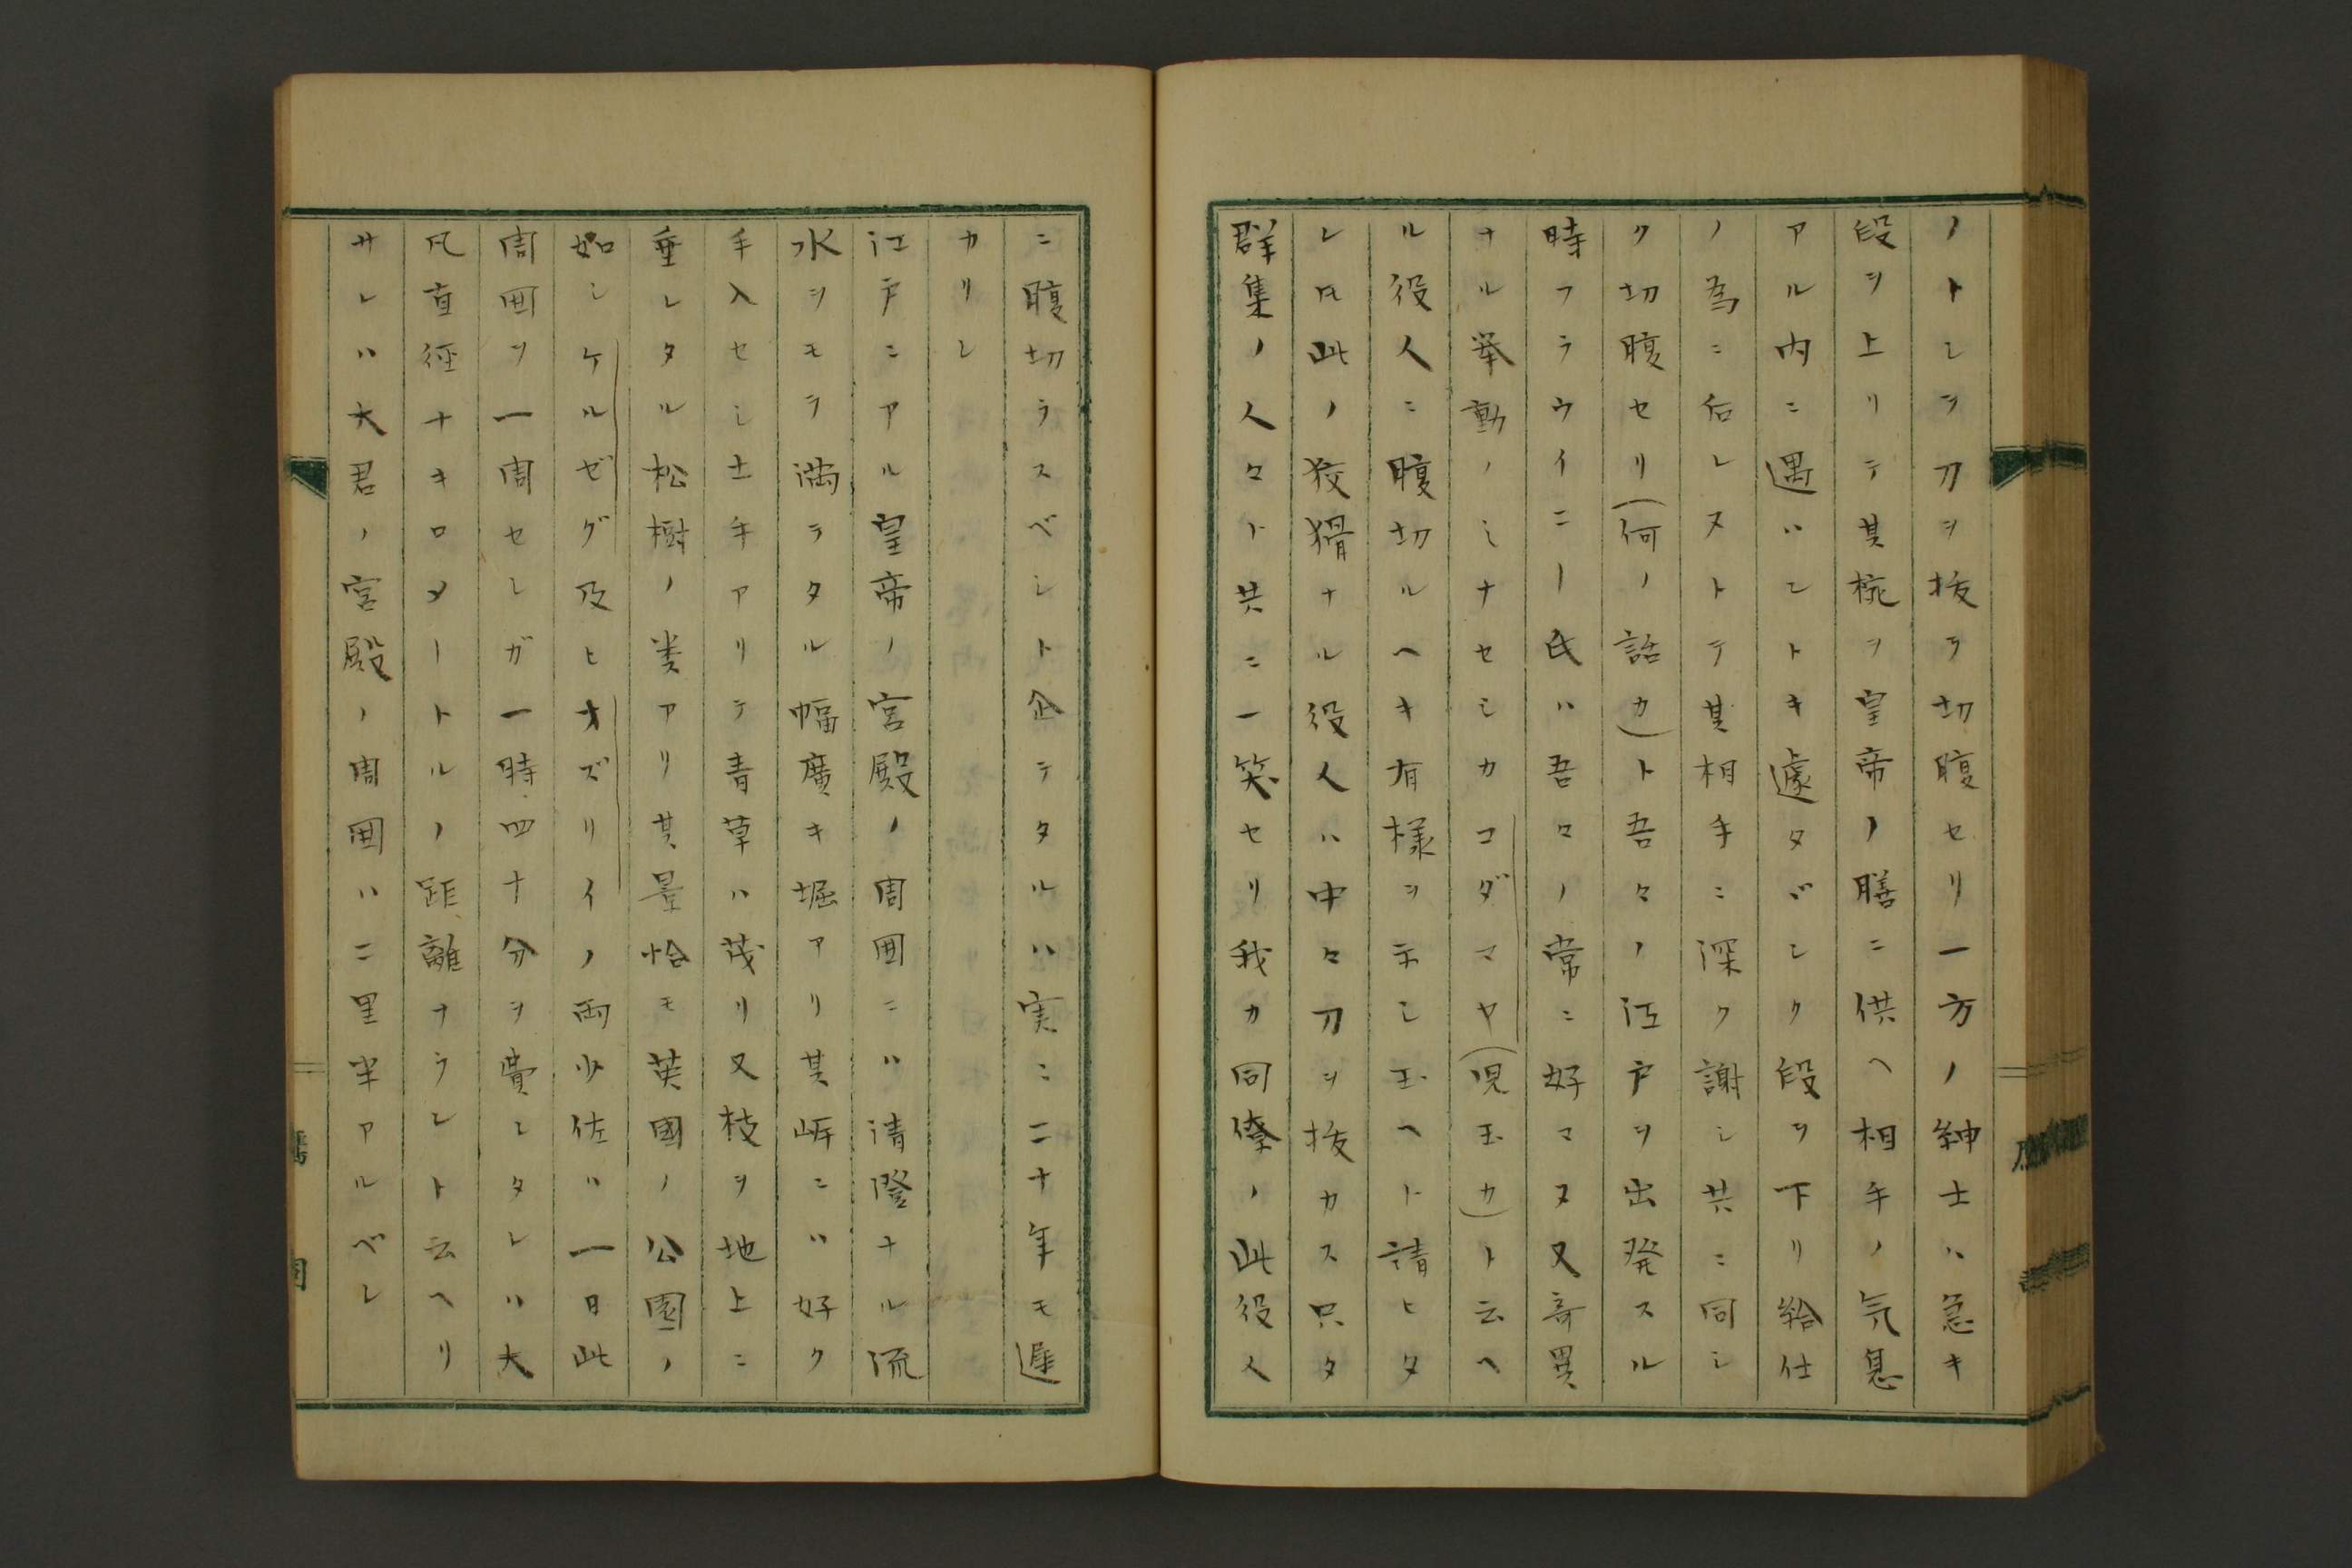 ノトシヲ刀ヲ抜テ切腹セリ一方ノ紳士ハ急キ
段ヲ上リテ其椀ヲ皇帝ノ膳ニ供ヘ相手ノ気息
アル内ニ遇ハントキ遽タヾシク段ヲ下リ給仕
ノ為ニ后レヌトテ其相手ニ深ク謝シ共ニ同シ
ク切腹セリ(何ノ話カ)ト吾々ノ江戸ヲ出発スル
時フラウイニー氏ハ吾々ノ常ニ好マヌ又奇異
ナル挙動ノミナセシカコダマヤ(児玉カ)ト云ヘ
ル役人ニ腹切ルヘキ有様ヲ示シ玉ヘト請ヒタ
レ𪜈此ノ狡猾ナル役人ハ中々刀ヲ抜カス只タ
群集ノ人々ト共ニ一笑セリ我カ同僚ノ此役人
ニ腹切ラスベシト企テタルハ実ニ二十年モ遅
カリシ
江戸ニアル皇帝ノ宮殿ノ周囲ニハ清澄ナル流
水ヲモテ満テタル幅廣キ堀アリ其岍ニハ好ク
手入セシ土手アリテ青草ハ茂リ又枝ヲ地上ニ
垂レタル松樹ノ類アリ其景恰モ英國ノ公園ノ
如シケルゼグ及ヒオズリイノ両少佐ハ一日此
周囲ヲ一周セシガ一時四十分ヲ費シタレハ大
凡直徑ナキロメートルノ距離ナラント云ヘリ
サレハ大君ノ宮殿ノ周囲ハ二里半アルベシ